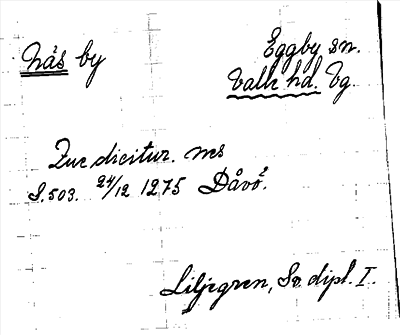 Nås by
Eggby sn.
Valle hd. Vg.
Que dicitur. nes
S. 503. 24/12 1275 Dåvö.
Liljegren, Sv. dipl. I.